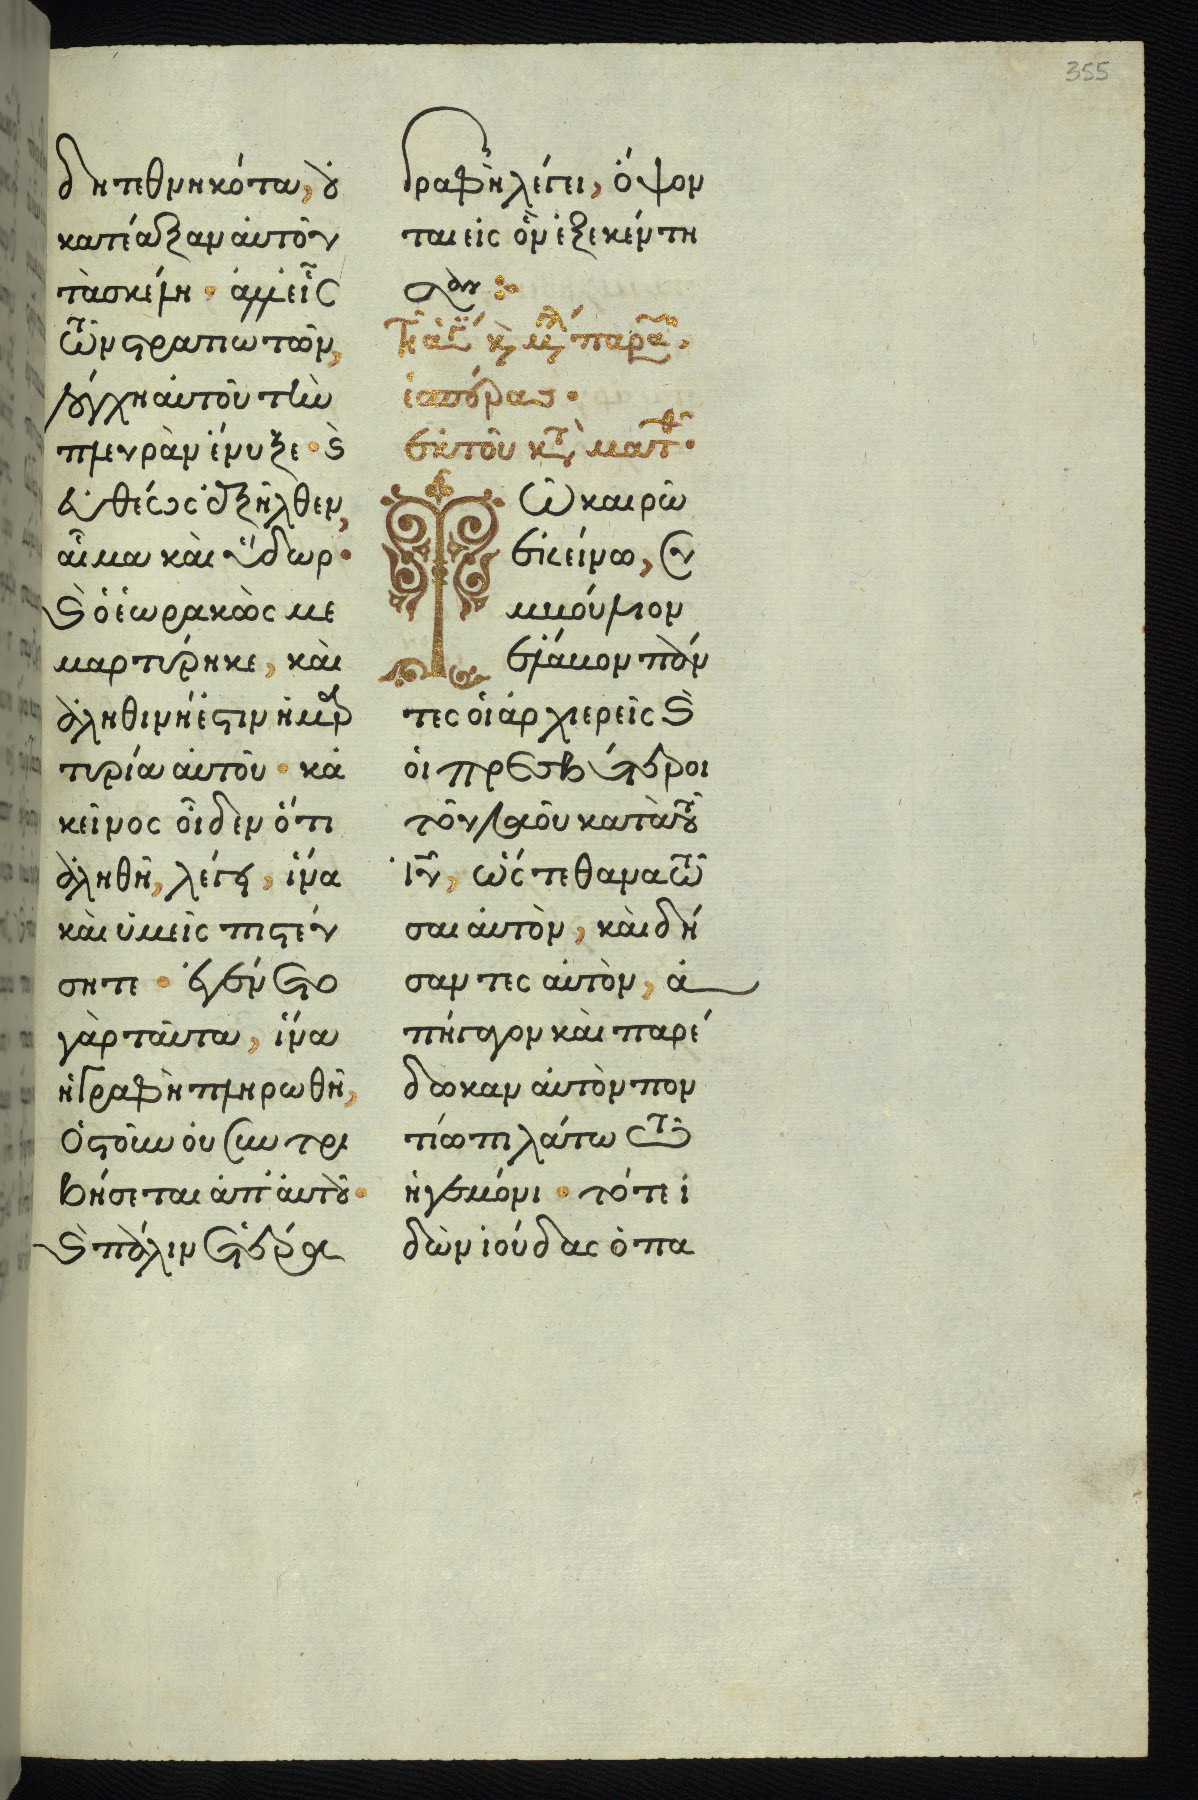 355
δη τεθνηκότα, οὐ
κατέαξαν αὐτοῦ
τὰ σκέλη · ἀλλ' εἷς
τῶν στρατιωτῶν,
λόγχη αὐτοῦ τὴν
πλευρὰν ἔνυξε · καὶ
εὐθέως ἐξῆλθεν,
αἷμα καὶ ὕδωρ ·
καὶ ὁ ἑωρακὼς με
μαρτύρηκε, καὶ
ἀληθινὴ ἐστιν ἡ μαρ
τυρία αὐτοῦ · κἀ
κεῖνος οἶδεν ὅτι
ἀληθῆ, λέγει, ἵνα
καὶ ὑμεῖς πιστεύ
σητε · ἐγένετο
γὰρ ταῦτα, ἵνα
ἡ γραφὴ πληρωθῆ,
ὀστοῦν οὐ συντρι
βήσεται ἀπ' αὐτοῦ ·
καὶ πάλιν ἑτέρα
γραφὴ λέγει, ὄψον
ται εἰς ὃν ἐξεκέντη
σαν :
τῆ ἁγία καὶ μεγάλη παρα
ἑσπέρας ·
ἐκ τοῦ κατὰ ματθ ·
Τῶ καιρῶ
ἐκείνω, συ
μβούλιον
ἔλαβον πάν
τες οἱ ἀρχιερεῖς καὶ
οἱ πρεσβύτεροι
τοῦ λαοῦ κατὰ τοῦ
ἰυ, ὥστε θανατῶ
σαι αὐτὸν, καὶ δή
σαντες αὐτὸν, ἀ
πήγαγον καὶ παρέ
δωκαν αὐτὸν πον
τίω πιλάτω τῶ
ἡγεμόνι · τότε ἰ
δὼν ἰούδας ὁ πα